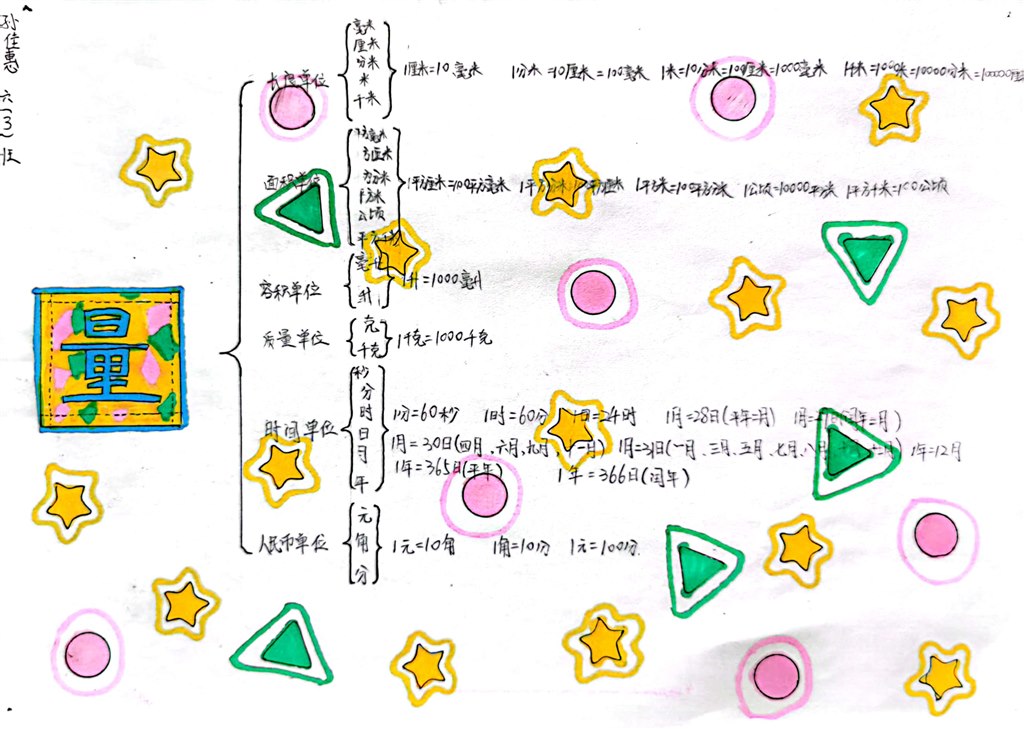 孙佳惠 六(3)班
量
长度单位
毫米
厘米
分米
米
千米
1厘米=10毫米 1分米=10厘米=100毫米 1米=10分米=100厘米=1000毫米 1千米=1000米=10000分米=100000厘
面积单位
平方毫米
方厘米
方分米
平方米
公顷
平方千米
1平方厘米=100平方毫米 1平方分米 平方厘米 1平方米=100平方分米 1公顷=10000平方米 1平方千米=100公顷
容积单位
毫升
升
1升=1000毫升
质量单位
克
千克
1千克=1000千克
时间单位
秒
分
时
日
月
年
1分=60秒 1时=60分 1日=24时 1月=28日(平年二月) 1月=29日(闰年二月)
1月=30日(四月、六月、九月、十一月) 1月=31日(一月、三月、五月、七月、八月、十月、十二月) 1年=12月
1年=365日(平年) 1年=366日(闰年)
人民币单位
元
角
分
1元=10角 1角=10分 1元=100分.